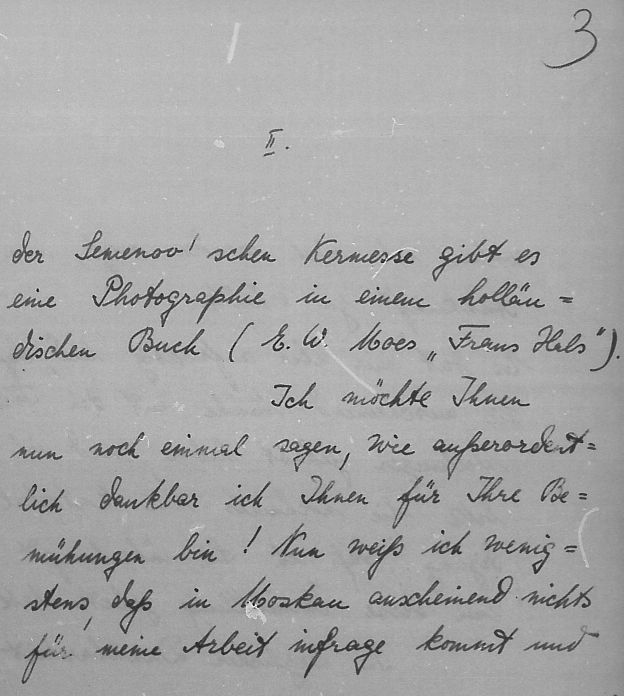 3
II.
der Semenov'schen Kermesse gibt es
eine Photographie in einem hollän=
dischen Buch (E. W. Moes „Frans Hals").
Ich möchte Ihnen
nun noch einmal sagen, wie außerordent=
lich dankbar ich Ihnen für Ihre Be=
mühungen bin! Nun weiß ich wenig=
stens, daß in Moskau anscheinend nichts
für meine Arbeit infrage kommt und